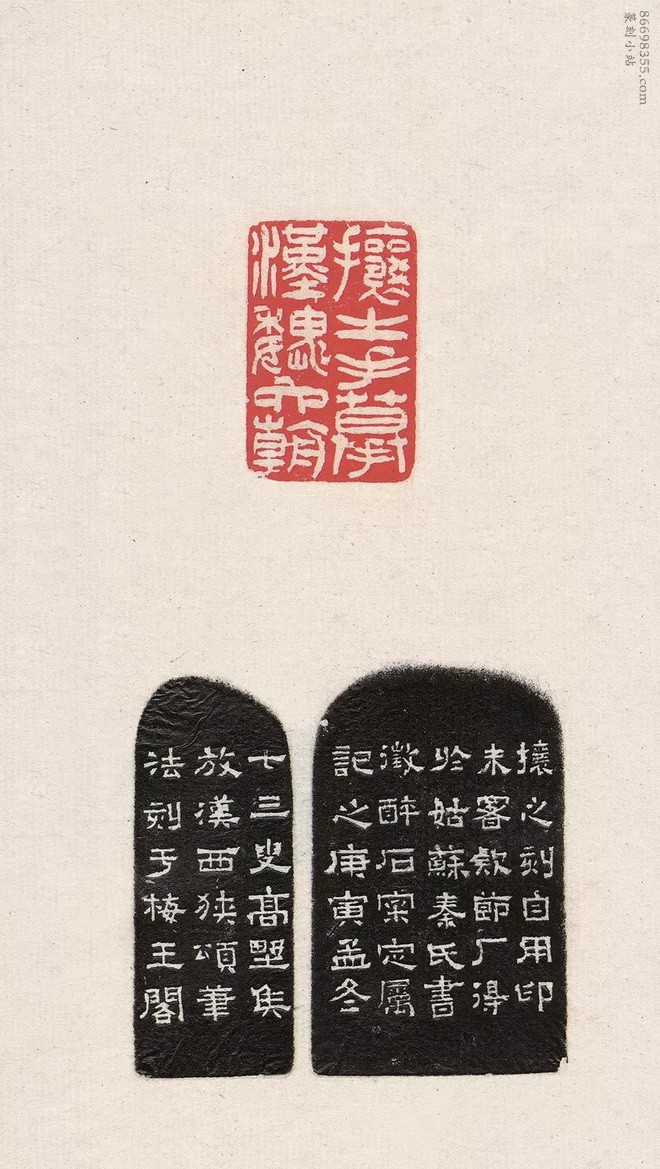 86698355.com
篆刻小站
攘之手摹
漢魏六朝
攘之刻自用印
未署欵節厂得
於姑蘇秦氏書
徵醉石宷定属
記之庚寅孟冬
七三叟高埜矦
放漢西狭頌筆
法刻于梅王閣